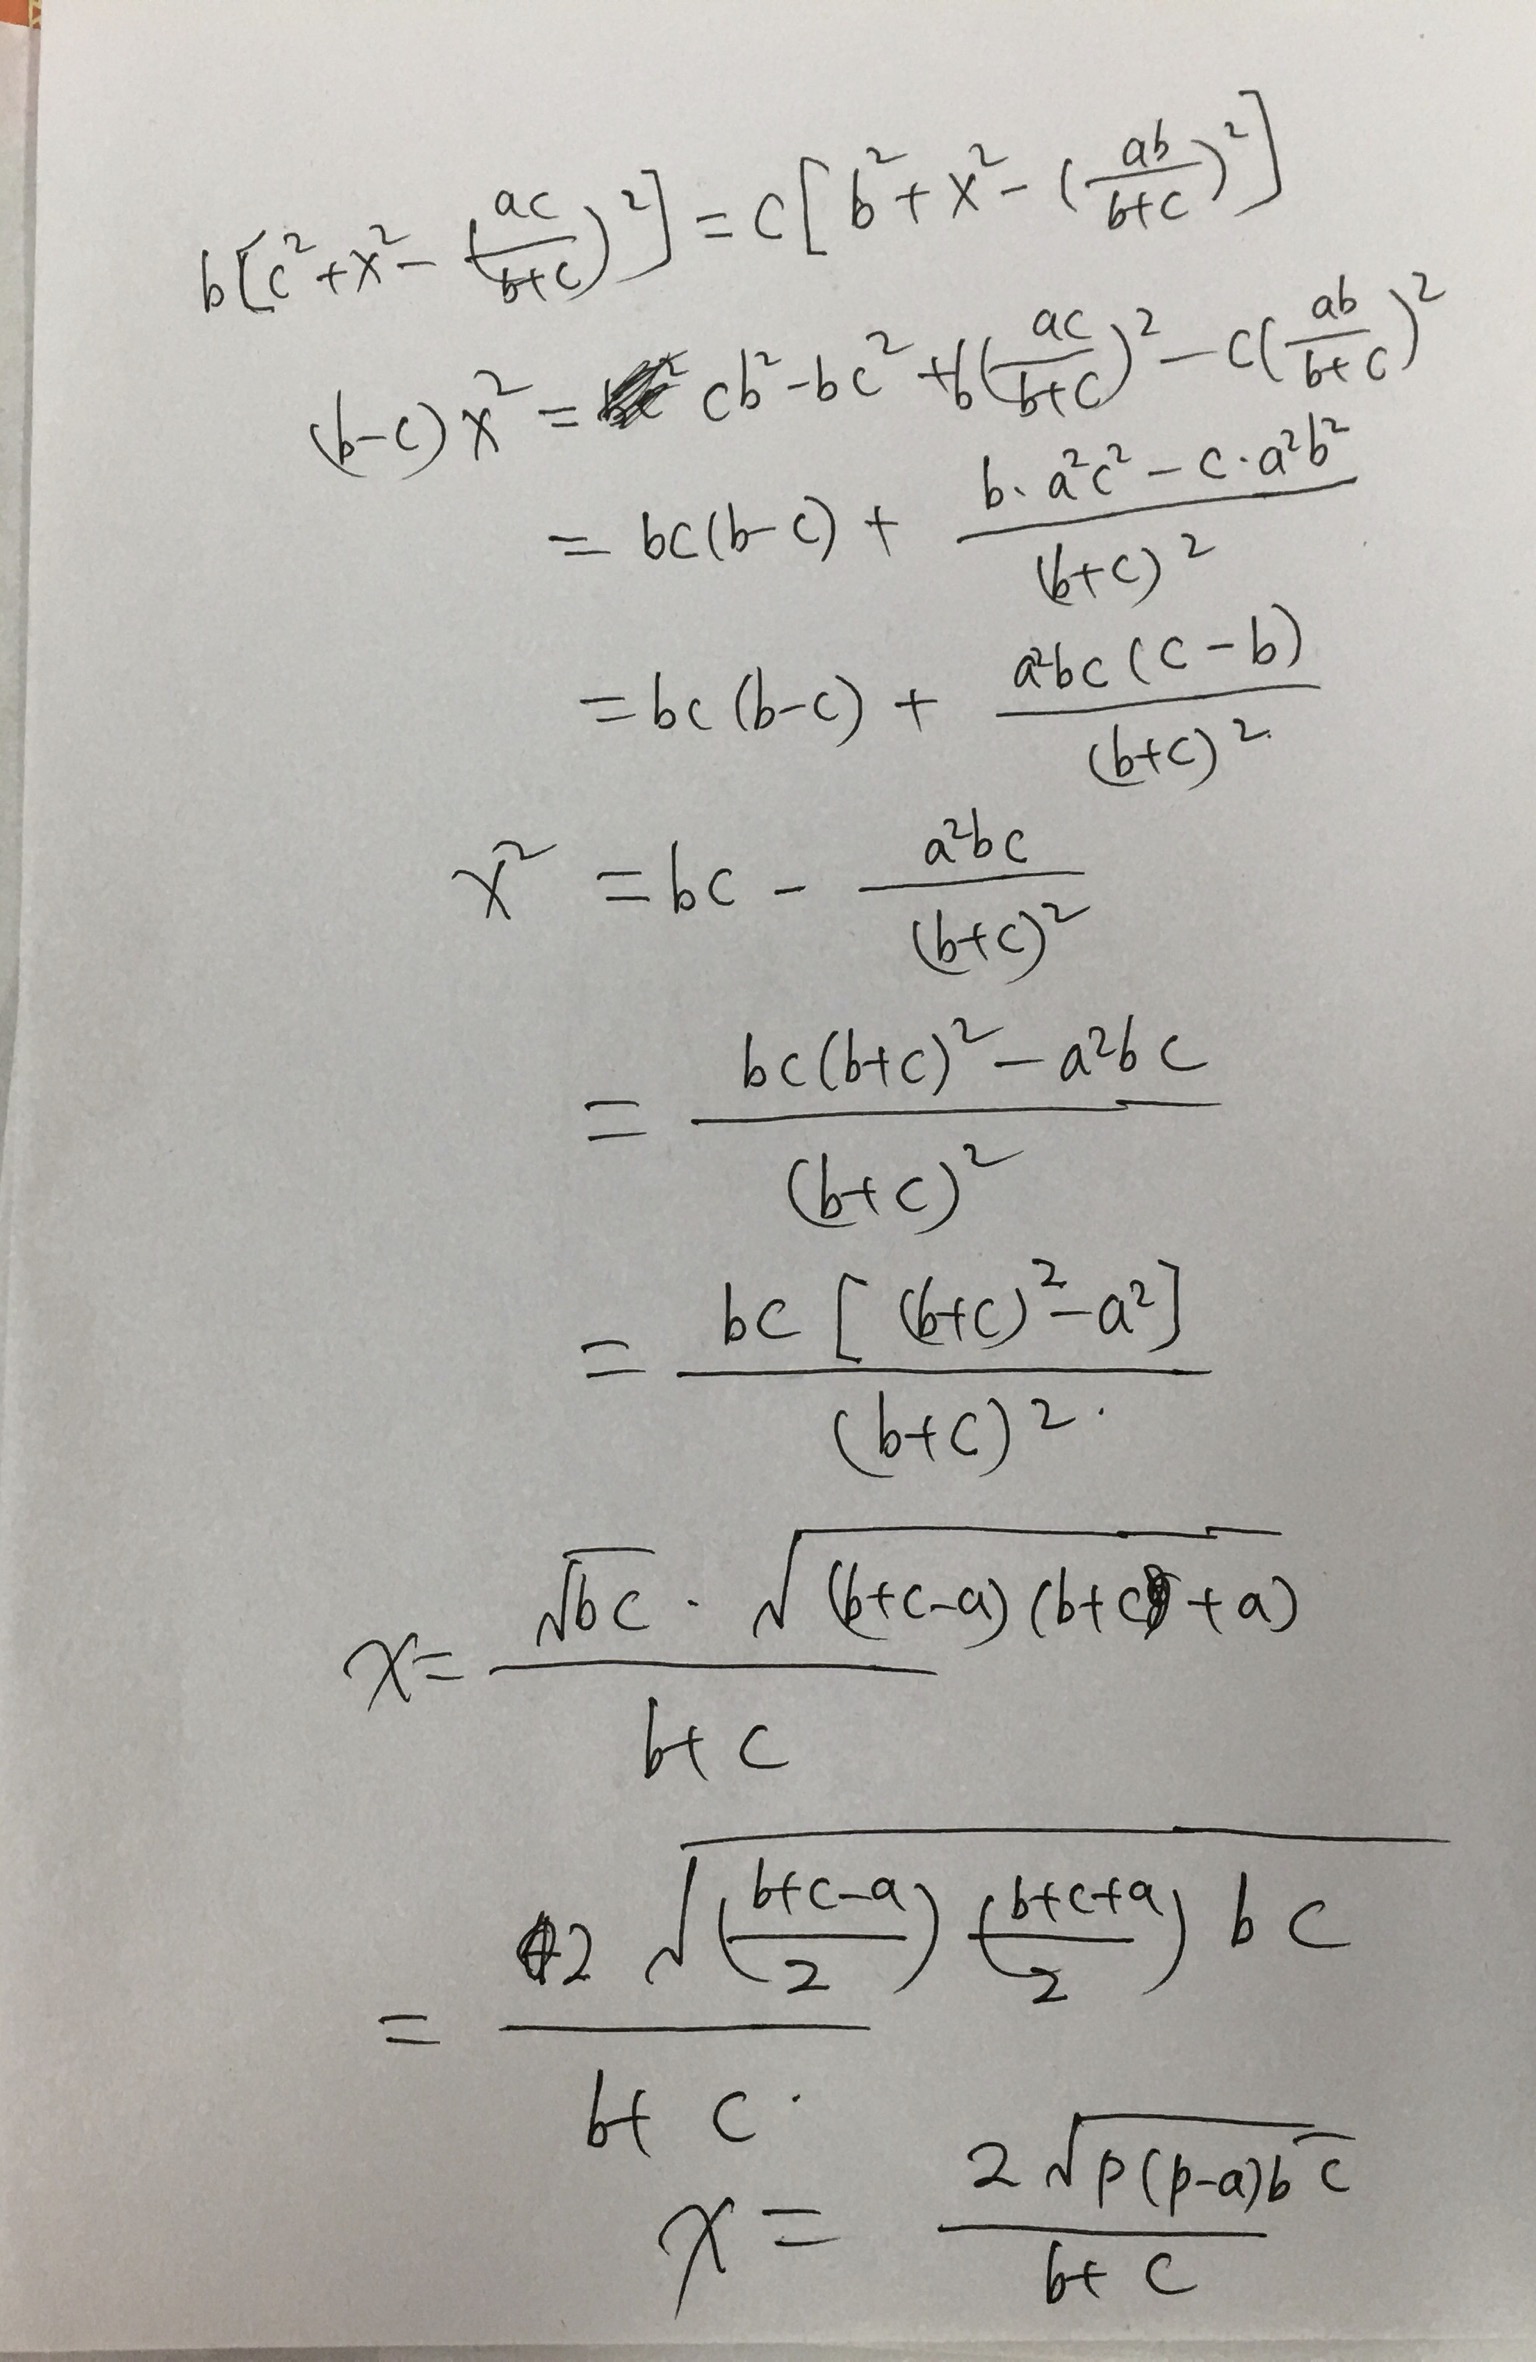 b[c²+x²-(ac/(b+c))²]=c[b²+x²-(ab/(b+c))²]
(b-c)x²= cb²-bc²+b(ac/(b+c))²-c(ab/(b+c))²
=bc(b-c)+(b·a²c²-c·a²b²)/(b+c)²
=bc(b-c)+a²bc(c-b)/(b+c)²
x²=bc-a²bc/(b+c)²
=(bc(b+c)²-a²bc)/(b+c)²
=bc[(b+c)²-a²]/(b+c)²
x=√bc·√((b+c-a)(b+c+a))/(b+c)
=2√(((b+c-a)/2)((b+c+a)/2)bc)/(b+c)
x=2√(p(p-a)bc)/(b+c)